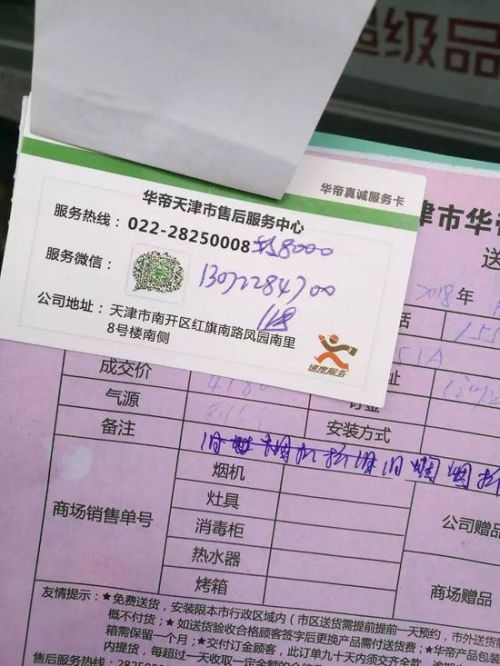 超级品
华帝真诚服务卡
华帝天津市售后服务中心
服务热线：022-28250008 转8000
服务微信：
13072284700
公司地址：天津市南开区红旗南路凤园南里
8号楼南侧
速度服务
津市华帝
送
2018 年
话 155
51A
址
成交价
订金
气源
安装方式
备注
旧 烟机拆
商场销售单号
烟机
灶具
消毒柜
热水器
烤箱
公司赠品
商场赠品
友情提示：★免费送货，安装限本市行政区域内（市区送货需提前提前一天预约，市外送货
概不付货；★如送货验收合格顾客签字后更换产品需付送货费；★华帝产品包装
箱需保留一个月；★交付订金顾客，此订单九十天内交清余款
内提货，每超过一天收取一定金额的仓储
售后服务热线：28250